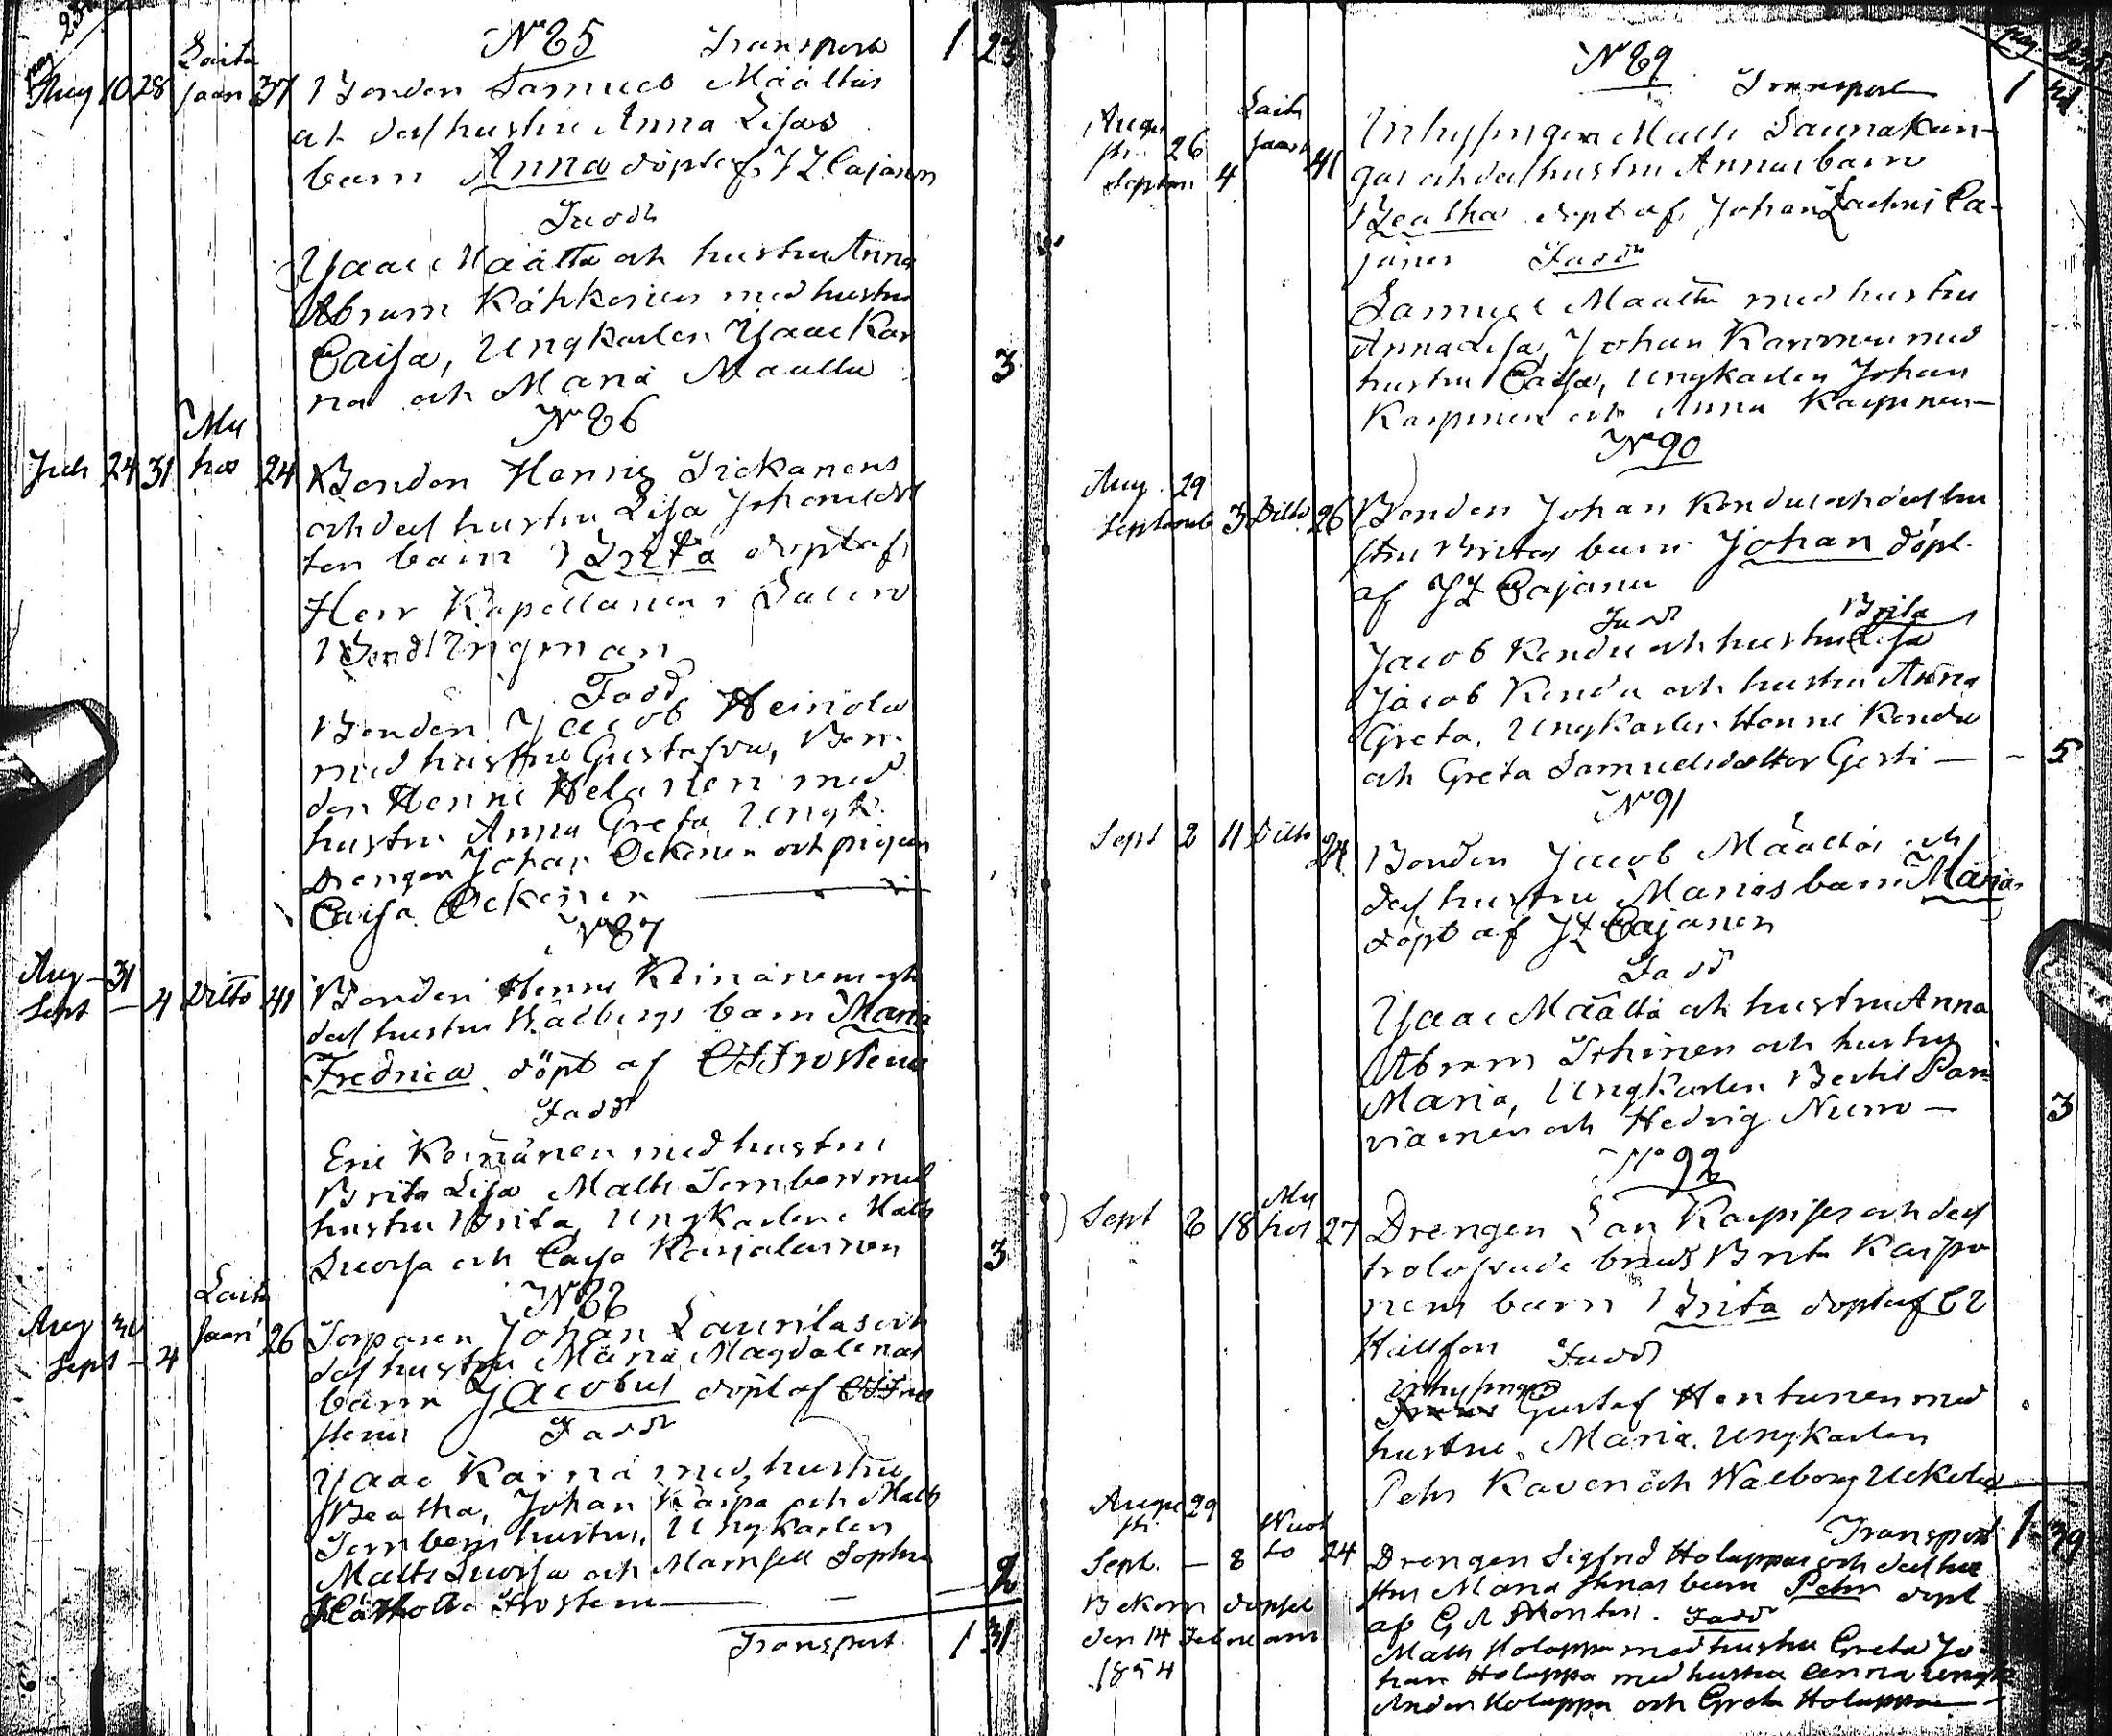 pag 25
N 85 Transport 1 23
Laita
Aug 10 28 jaari 37 Bonden Samuel Määttäs
och dess hustru Anna Lisas
barn Anna döpt af J Z Cajanen
Fadd
Isaac Määtta och hustru Anna
Abram Kähkönen med hustru
Caisa, Ungkarlen Isaac Kar
na och Maria Maatta 3
N 86
Mu
Juli 24 31 hos 24 Bonden Henric Tickanens
och dess hustru Lisa Johansdot
ter barn Brita döpt af
Herr Kapellanen i Salew
Bend Ingman
Fadd
Bonden Jacob Heinola
med hustru Gustafva, Bon-
den Henric Helanen med
hustru Anna Greta, Ungk
Drengen Johan Ockonen och pigan
Caisa Ockonen
N 87
Aug 31
Sept 4 Ditto 41 Bonden Henric Keinänen och
dess hustru Walborgs barn Maria
Fredrica döpt af Frosterus
Fadd
Eric Keinänen med hustru
Brita Lisa Matts Tornberg med
hustru Brita, Ungkarlen Matts
Suorsa och Caisa Karjalainen 3
N 88
Laita
Aug 30 jaari 26 Torparen Johan Laurilas och
Sept - 4 dess hustru Maria Magdalenas
barn Jacobus döpt af Fros
terus Fadd
Isaac Karna med hustru
Beatha, Johan Karpa och Matts
Tornbergs hustru, Ungkarlen
Matts Suorsa och Mamsell Sophia
Frosterus 2
Transport 1 31
N 89
Transport 1 31
Laita
Augu
sti 26 jaari 41 Inhysingen Matts Saunakan-
Septem 4 gas och dess hustru Annas barn
Beatha döpt af Johan Zachris Ca-
janus Fadd
Samuel Maatta med hustru
Anna Lisa, Johan Karvonen med
hustru Caisa, Ungkarlen Johan
Karpinen och Anna Karpinen
N 90
Aug 29
Septemb 3 Ditto 26 Bonden Johan Kondus och dess hu
stru Britas barn Johan döpt
af J Z Cajanus
Fadd Brita
Jacob Kondu och hustru Lisa
Jacob Kondu och hustru Anna
Greta, Ungkarlen Henric Kondu
och Greta Samuelsdotter Gerti 5
N 91
Sept 2 11 Ditto 24 Bonden Jacob Määttäs och
dess hustru Marias barn Maria
döpt af J Z Cajanen
Fadd
Isaac Määttä och hustru Anna
Abram Tihinen och hustru
Maria, Ungkarlen Bertil Par
viainen och Hedvig Nurro 3
N 92
Mu
Sept 6 18 hos 27 Drengen Lars Karpises och dess
trolofvade brud Brita Karpi
nens barn Brita döpt af
Fadd
Inhysingen
Gustaf Hentunen med
hustru Maria, Ungkarlen
Pehr Kavenoch Walborg Uckola
Transport 1 39
Augu
sti 29 Wuol
Sept. - 8 to 24 Drengen Sigfrid Holappas och dess hu
Bekom dopsel strus Maria Stinas barn Pehr döpt
den 14 Februari af G A Montin. Fadd
1854 Matts Holappa med hustru Greta Jo
han Holappa med hustru Anna Ungk
Anders Holappa och Greta Holappa